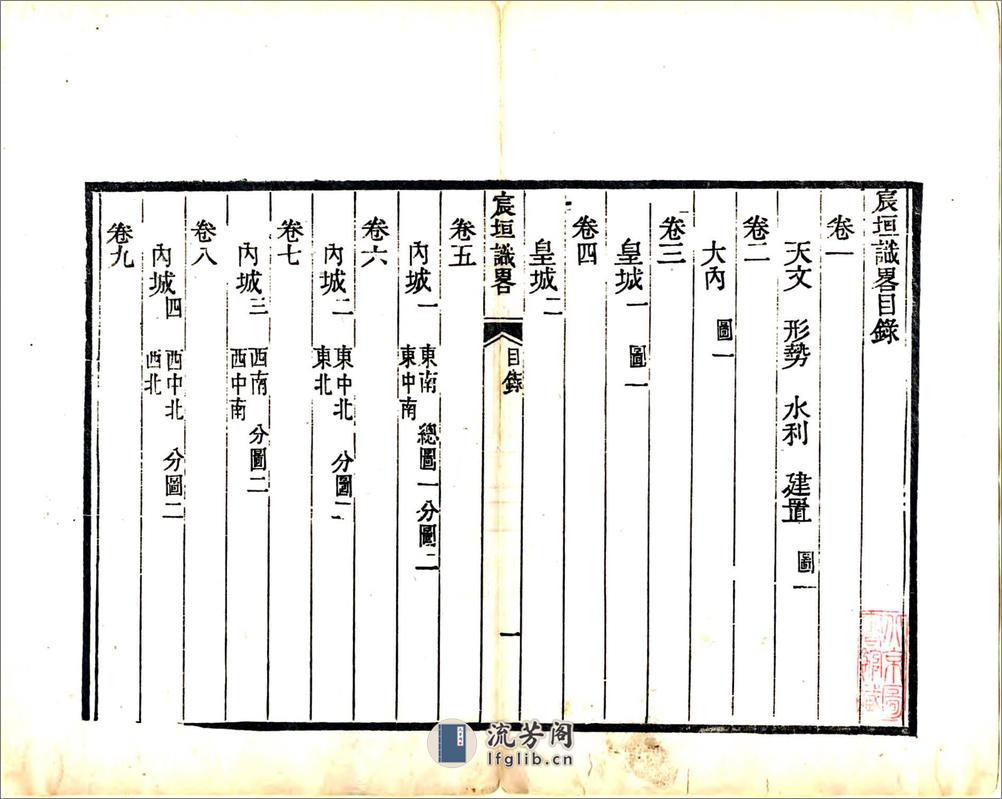 宸垣識畧目錄
卷一
天文 形勢 水利 建置 圖一
卷二
大內 圖一
卷三
皇城一 圖一
卷四
皇城二
宸垣識畧 目錄 一
卷五
內城一 東南 東中南 總圖一分圖二
卷六
內城二 東中北 東北 分圖二
卷七
內城三 西南 西中南 分圖二
卷八
內城四 西中北 西北 分圖二
卷九
北京圖書館藏
流芳阁
lfglib.cn